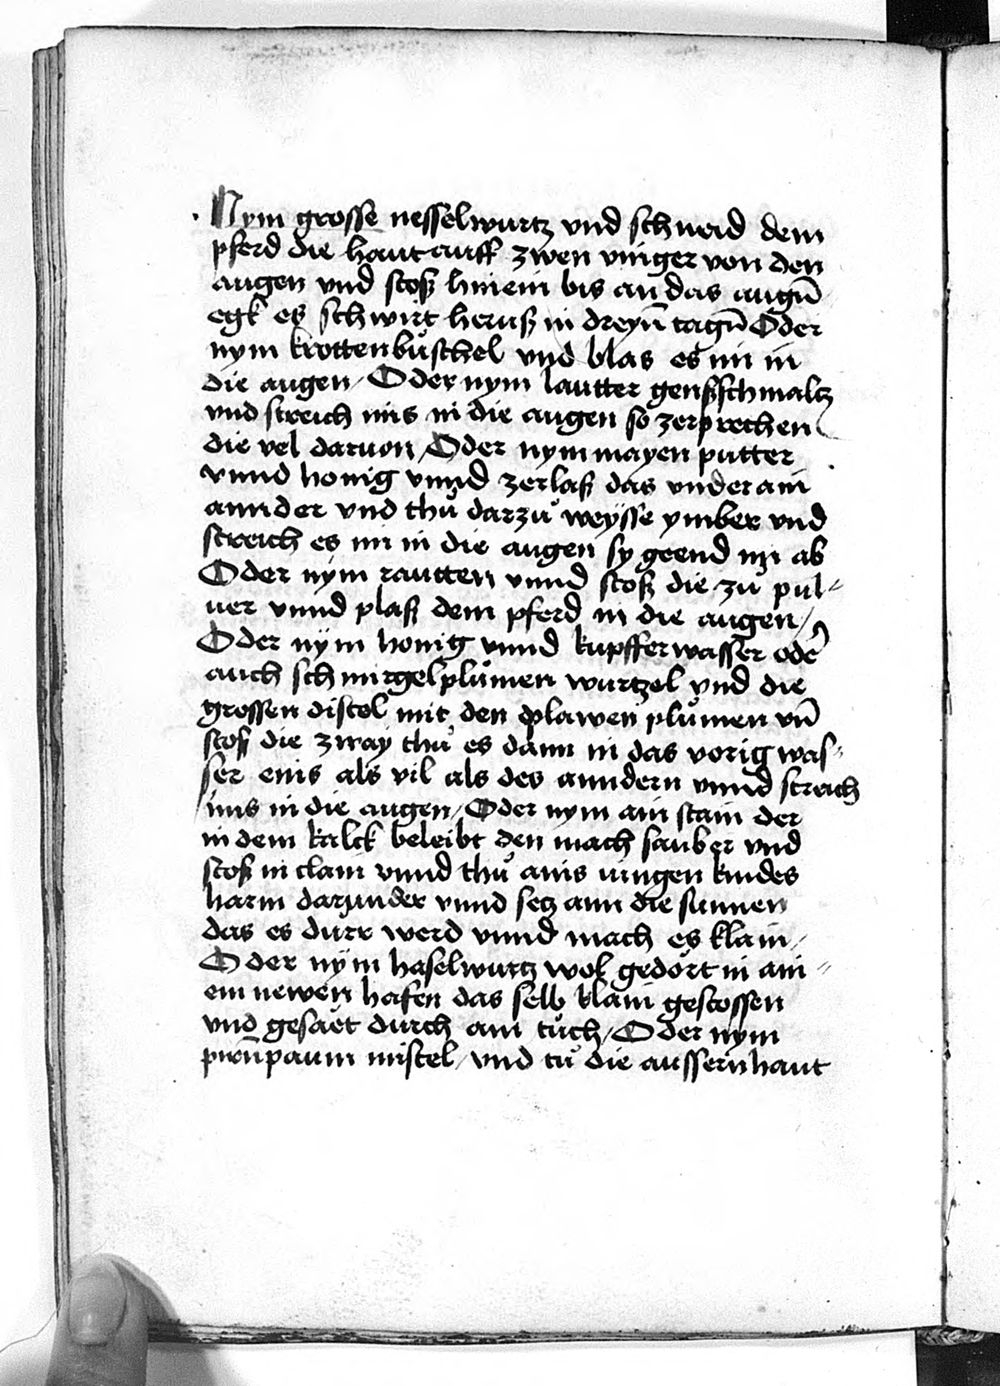 Nym grosse nesselwurtz vnd schneid dem
pferd die haut auff zwen vinger von den
augen vnd stoß hinein bis an das augn̄
egk es schwirt heruß in dreyn̄ tagn̄ Oder
nym krottenbüschel vnd blas es im in
die augen / Oder nym lautter genßschmaltz
vnd streich ims in die augen so zerprechen
die vel daruon / Oder nym mayen putter
vnnd honig vnnd zerlaß das vnder ain
annder vnd thů darzů weÿsse ymber vnd
streich es im in die augen sy geend im ab
Oder nÿm rautten vnnd stoß die zů pul⸗
uer vnnd plaß dem pferd in die augen /
Oder nÿm honig vnnd kupfferwasser oder
auch schmirgelplůmen wurtzel vnd die
grossen distel mit den plawen plůmen vn̄
stoß die zway thů es dann in das vorig was⸗
ser eins als vil als des anndern vnnd streich
ims in die augen / Oder nym ain stain der
in dem kalck beleibt den mach sauber vnd
stoß in clain vnnd thů ains iungen kindes
harm darunder vnnd setz ann die sunnen
das es durr werd vnnd mach es klain /
Oder nÿm haselwurtz wol gedört in ain⸗
em newen hafen das selb klain gestossen
vnd gesäet durch ain tůch / Oder nym
pirn̄paum mistel / vnd tů die aussern haut